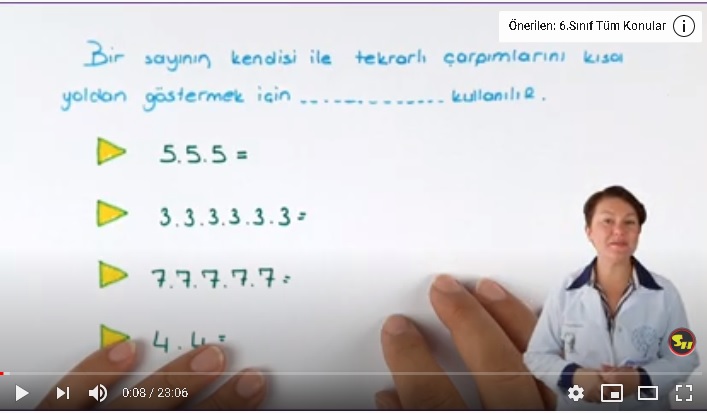 Önerilen: 6.Sınıf Tüm Konular
Bir sayının kendisi ile tekrarlı çarpımlarını kısa
yoldan göstermek için .............. kullanılır.
5.5.5=
3.3.3.3.3.3=
7.7.7.7.7=
4.4=
SH
0:08 / 23:06